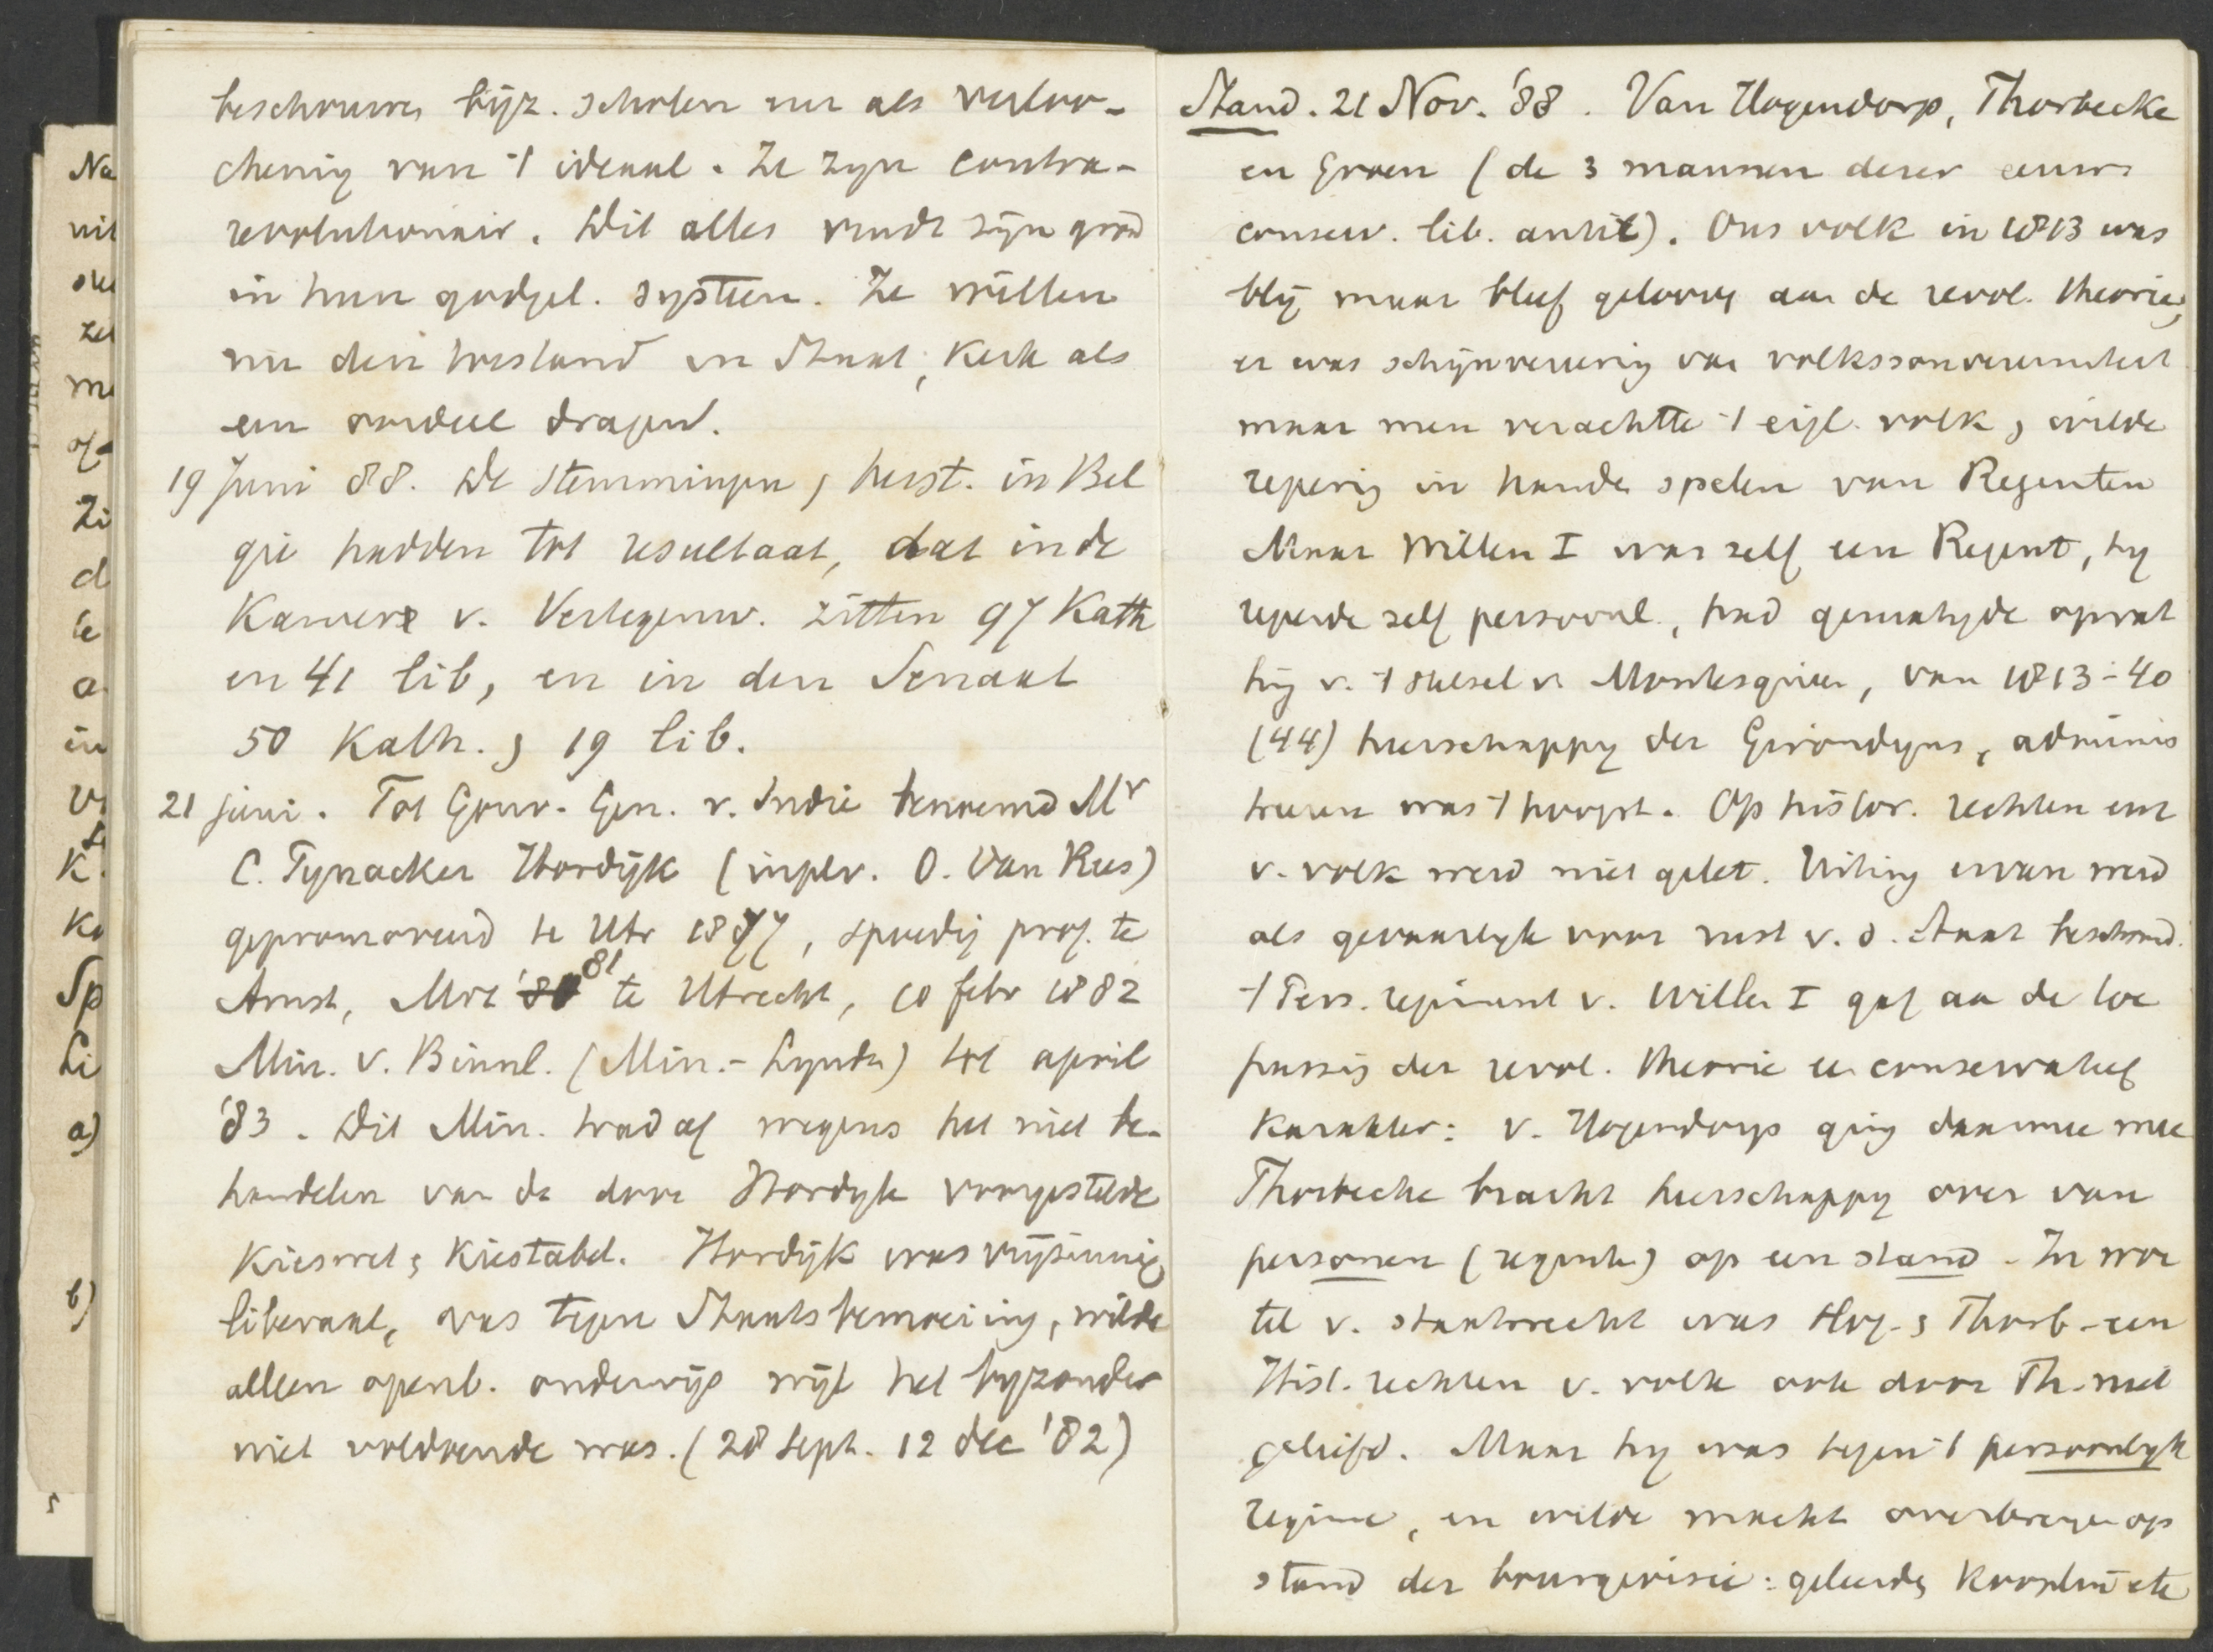 beschouwen bijz. scholen nu als verloo-
chening van 't ideaal. Ze zijn contra-
revolutionair. Dit alles vindt zijn grond
in hun godgel. systeem. Ze willen
nu den toestand in Staat, Kerk als
een oordeel dragend.
19 Juni 88. De stemmingen, herst. in Bel
gie hadden tot resultaat, dat in de
Kamer v. Vertegenw. zitten 97 Kath
en 41 lib, en in den Senaat
50 Kath. , 19 lib.
21 juni. Tot Gouv. Gen. v. Indie benoemd Mr
C. Pynacker Hordijk (inplv. O. van Rees)
gepromoveerd te Utr 1877, spoedig prof. te
Amst, Mrt '81 te Utrecht, 10 febr 1882
Min. v. Binnl. (Min.-Lynden) tot april
'83. Dit Min. trad af wegens het niet be-
handelen van de door Hordyk voorgestelde
Kieswet, Kiestabel. Hordijk was vrijzinnig
liberaal, was tegen Staatsbemoeiing, wilde
alleen openb. onderwijs wijl het byzonder
niet voldoende was. (28 Sept. 12 dec '82)
Na
nit
zei
me
Zi
d
a
in
K.
Ka
Sp
Li
a)
b)
Stand. 21 Nov. '88. Van Hogendorp, Thorbecke
en Groen (de 3 mannen dezer eeuw
conserv. lib. antil). Ons volk in 1813 was
blij maar bleef geloovig aan de revol. theorie,
er was schijnvereering van volkssouvereiniteit
maar men verachtte 't eigl. volk, wilde
regering in handen spelen van Regenten
Maar Willem I was zelf een Regent, hy
regeerde zelf persoonl., had gematigde opvat
ting v. 't stelsel v. Montesquieu, van 1813-40
(44) heerschappy der Girondyns, adminis
treeren was 't hoogst. Op histor. rechten enz
v. volk werd niet gelet. Uiting ervan werd
als gevaarlyk voor rust v. d. Staat beschouwd.
't Pers. regiment v. Willem I gaf aan de toe
passing der revol. theorie een conservatief
Karakter: v. Hogendorp ging daarmee mee
Thorbecke bracht heerschappy over van
personen (regenten) op een stand. In wor
tel v. staatsrecht was Hog. , Thorb. een
Hist. rechten v. volk ook door Th. niet
geliefd. Maar hy was tegen 't persoonlyk
regime, en wilde macht overbrengen op
stand der bourgeoisie: geleerden, Kooplui etc